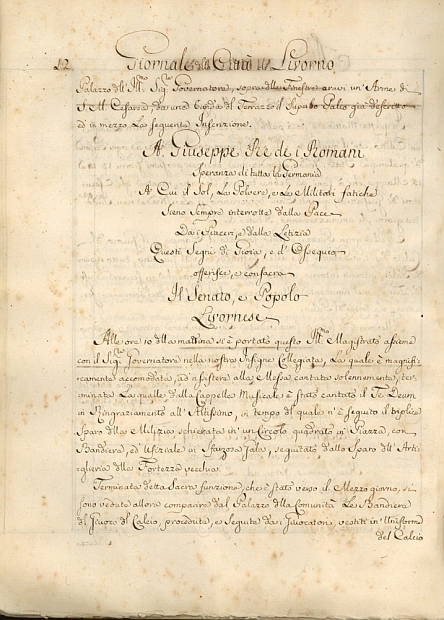 12 Giornale della Città di Livorno
Palazzo dell' Ill.mo Sig.re Governatore, sopra delle Finestre eravi un' Arme di
S. M. Cesarea, da una banda del Terrazzo il Palio già descritto
ed in mezzo La seguente Inscrizione.
A Giuseppe Re de i Romani
Speranza di tutta la Germania
A Cui il Sol, La Polvere, e Le Militari fatiche
Sieno Sempre interrotte dalla Pace
Da i Piaceri, e dalla Letizia
Questi Segni di Gioia, e d' Ossequio
offerisce, e consacra
Il Senato, e Popolo
Livornese
Alle ore 10 della mattina si è portato questo Ill.mo Magistrato assieme
con il Sig.re Governatore nella nostra Insigne Collegiata, La quale è magnifi-
camente accomodata, ad assistere alla Messa cantata solennemente, ter-
minata La quale dalla Cappella Musicale è stato cantato il Te Deum
in Ringraziamento all' Altissimo, in tempo del quale n' è seguito il triplice
Sparo della Milizia schierata in un Circolo quadrato in Piazza, con
Bandiera, ed Ufiziale in Sfarzosa Gala, seguitato dallo Sparo dell' Arti-
glieria della Fortezza vecchia.
Terminata detta Sacra funzione, che è stato verso il Mezzo giorno, si
sono vedute allora comparire dal Palazzo della Comunità Le Bandiere
del Giuoco del Calcio, precedute, e Seguite da i Giuocatori vestiti in Uniforme
del Calcio